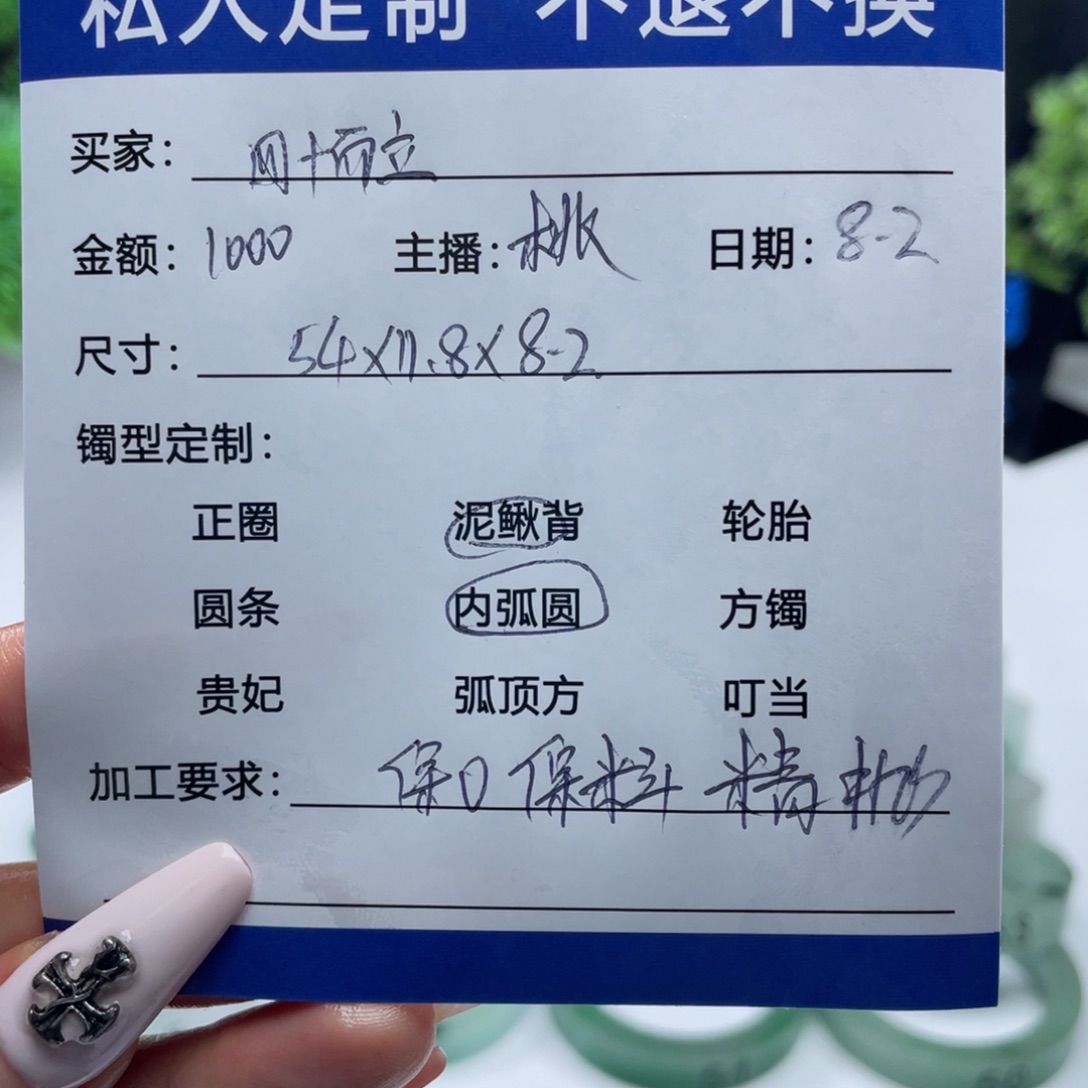 私人定制 不退不换
买家:
金额: 1000 主播: 桃 日期: 8-2
尺寸: 54×11.8×8-2
镯型定制:
正圈 泥鳅背 轮胎
圆条 内弧圆 方镯
贵妃 弧顶方 叮当
加工要求: 保口保料 精抛